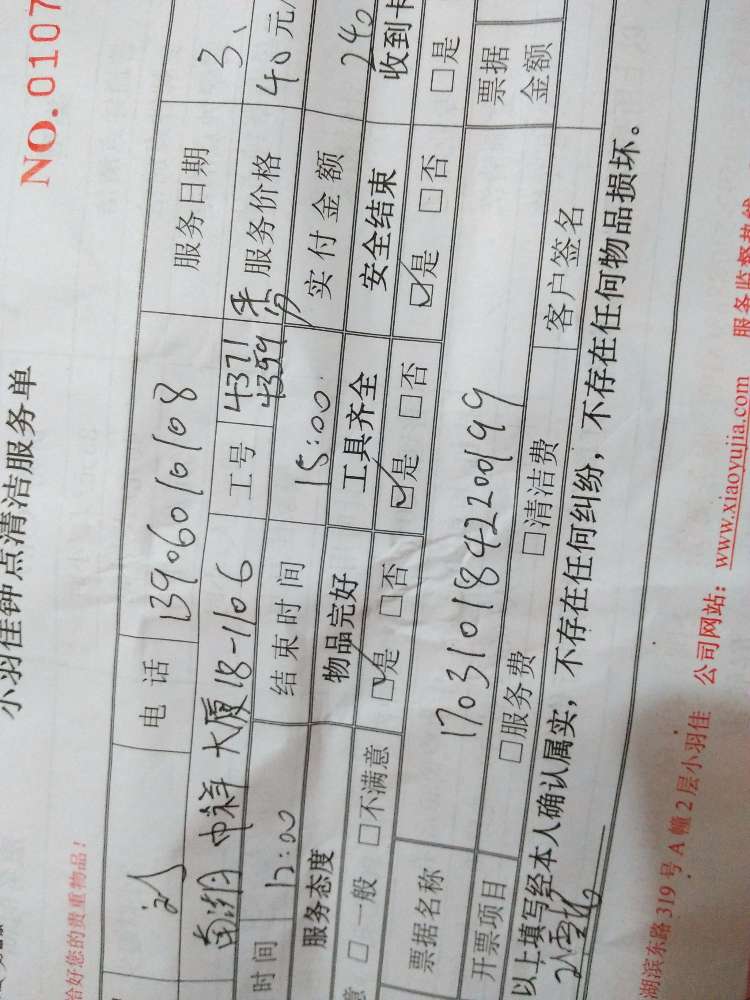 小羽佳钟点清洁服务单
NO.0107
恰好您的贵重物品!
电 话 13906010108 服务日期 3、
南湖中祥大厦18-1106 工号 4371 4359 服务价格 40元/
时间 12:00 结束时间 15:00 实付金额 240
服务态度 物品完好 工具齐全 安全结束 收到卡
意 □ 一般 □不满意 ☑是 □否 ☑是 □否 ☑是 □否 □是
票据名称 1703101842200199 票据
金额
开票项目 □服务费 □清洁费 客户签名
以上填写经本人确认属实，不存在任何纠纷，不存在任何物品损坏。
湖滨东路 319 号 A 幢 2 层小羽佳 公司网站：www.xiaoyujia.com 服务监督热线